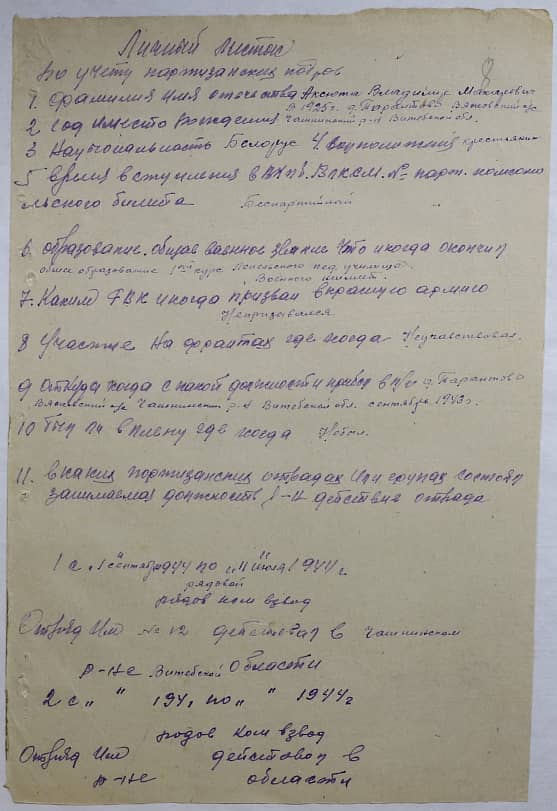 Личный листок
8
по учету партизанских кодров
1. Фамилия имя отечества Аксюта Владимир Макарович
в 1925 г. д. Парантово Вятковский с/с
2 год и место рождения Чашникский р-н Витебской обл.
3 Научоналвность Белорус 4. соцположения крестьянин
5 время вступления в ВКПб. ВЛКСМ. № парт. комсомо
льского билита Беспартийной
6. образование. общае ваенное звание что и когда окончил
общее образование 1ый курс Лепельского пед. училища
Военного
7. Каким РВК и когда призван в красную армию
Непризывался
8 Участие На фронтах где когда Неучавствовал.
9 откуда когда с какой должности прибыл в п/о д. Парантово
Вятковский с/с Чашникский р-н Витебской обл. сентябрь 1943 г.
10 был ли в плену где когда Небыл.
11. в каких портизанских отвадах или групах состоял
занимаемая должность р-н действие отвада
1 с "1" сентября 44 по "11" июля 1944 г
рядовой
рядов ком взвод
Отряд Им № 12 действовал в Чашникском
р-не Витебской области
2 с " " 194 по " " 1944 г
родов ком взвод
Отряд Им действовол в
р-не области